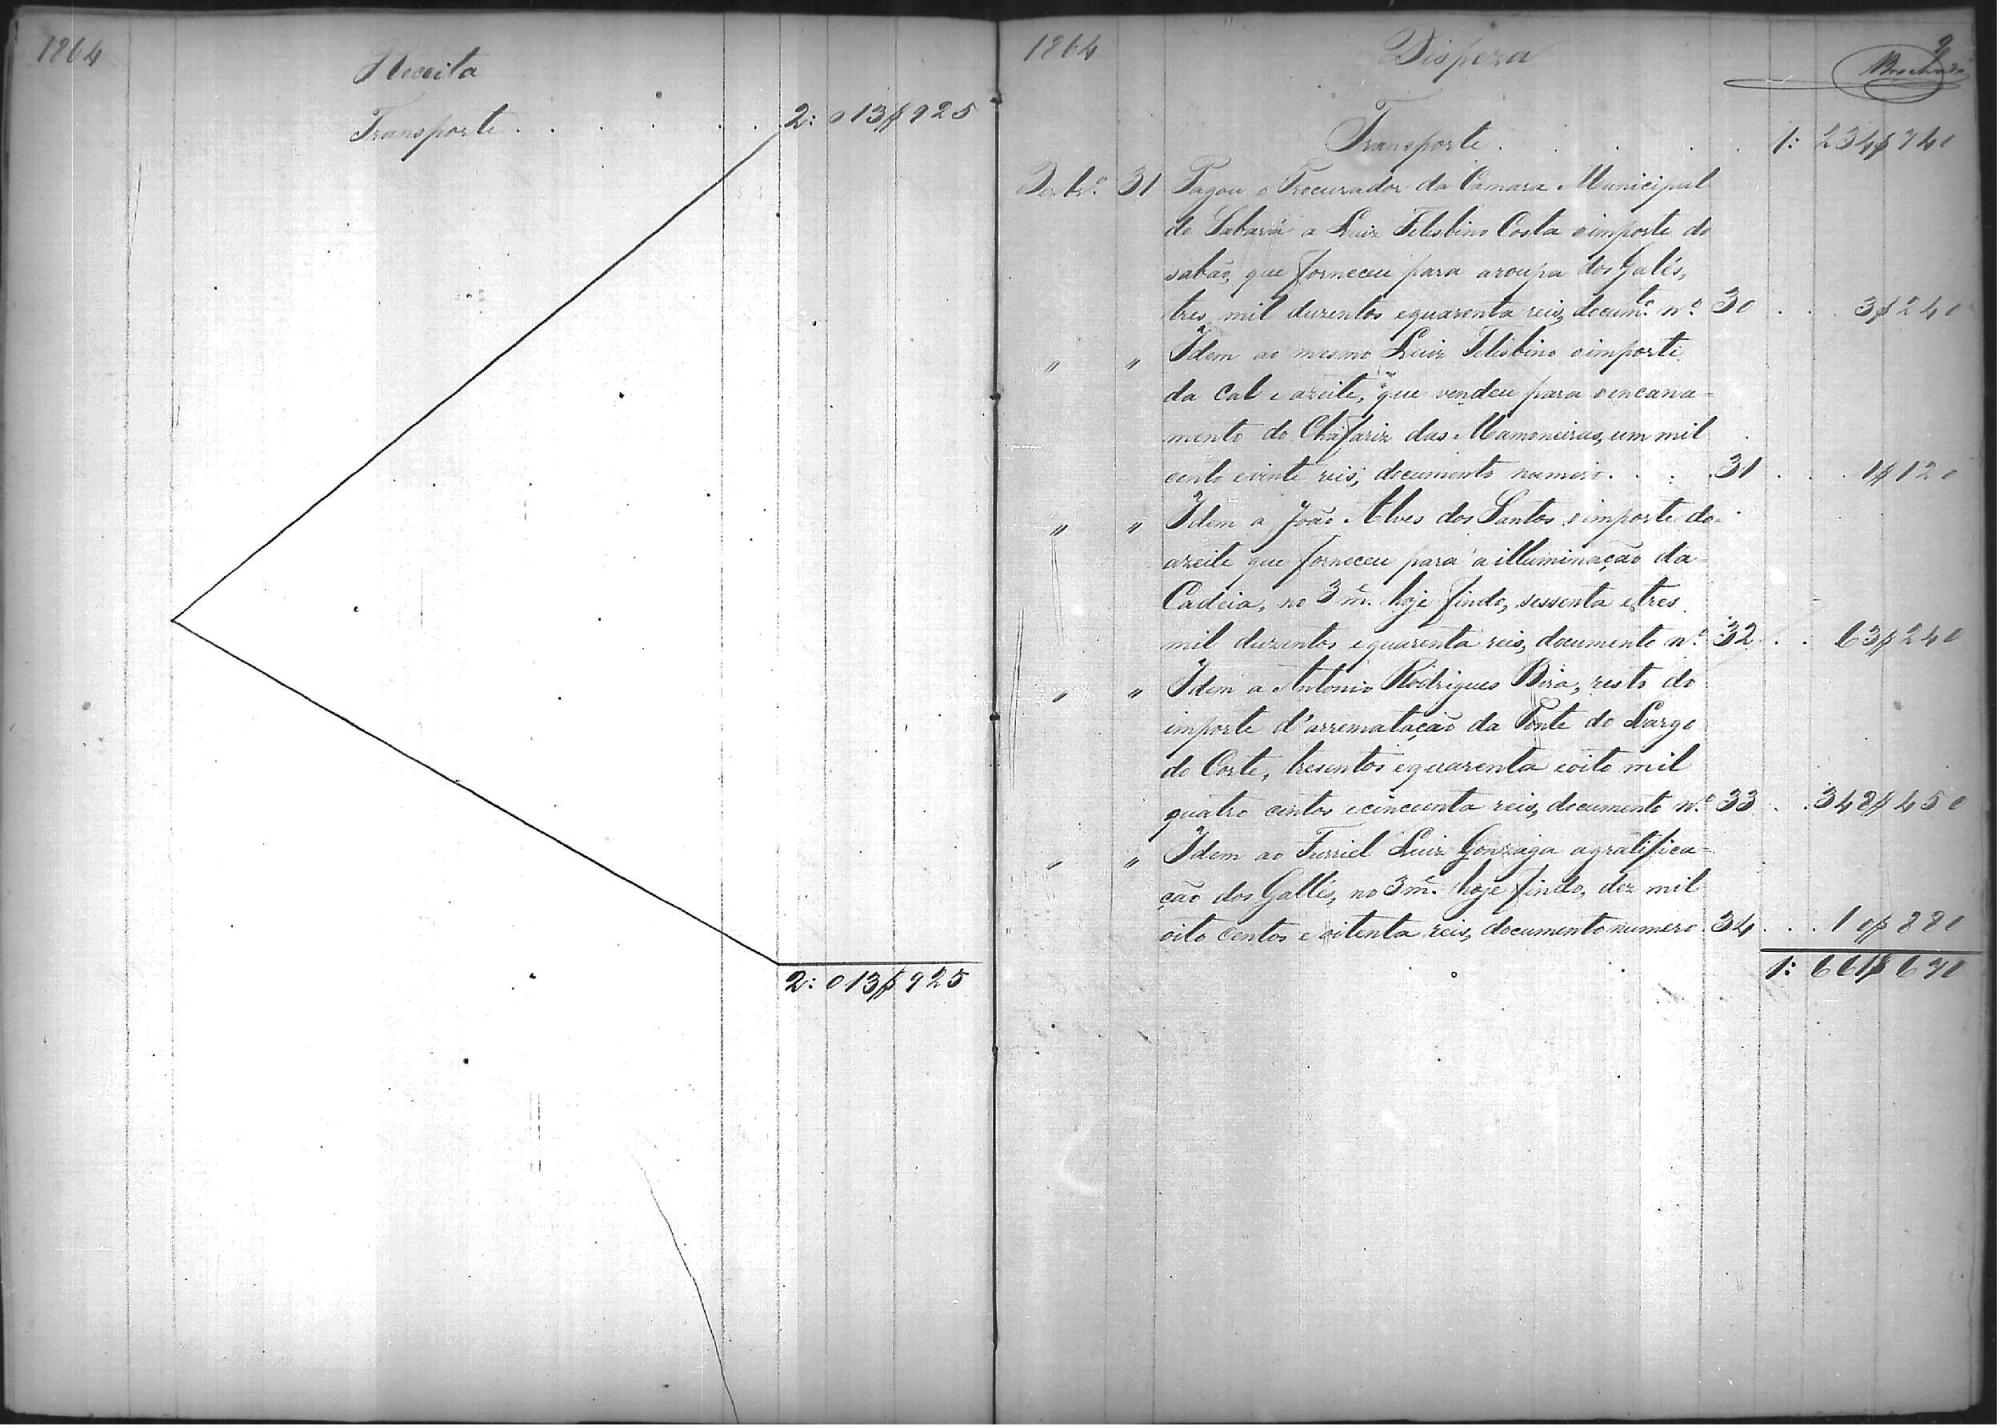 1864
Receita
Transporte . . . . . . 2: 013$925
2: 013$925
1864 Despeza 9
Transporte . . . . . 1: 234$740
Dezbrº 31 Pagou o Procurador da Camara Municipal
do Sabará a Luiz Telisbino Costa o importe do
sabão, que forneceu para a roupa dos Galés,
tres mil duzentos e quarenta reis, documtº nº 30 . . 3$240
" " Idem ao mesmo Luiz Telisbino o importe
da cal e azeite, que vendeu para o encana-
mento do Chafariz das Mamoneiras, um mil
cento e vinte reis, documento numero . . . 31 . . . 1$120
" " Idem a João Alves dos Santos o importe do
azeite que forneceu para a illuminação da
Cadeia, no 3m.e hoje findo, sessenta e tres
mil duzentos e quarenta reis, documento nº 32 . . 63$240
" " Idem a Antonio Rodrigues, resto do
importe d'arrematação da Ponte do Largo
do Corte, tresentos e quarenta e oito mil
quatro centos e cincoenta reis, documento nº 33 . . 348$450
" " Idem ao Furriel Luiz Gonzaga a gratifica-
ção dos Gallés, no 3m.e hoje findo, dez mil
oito centos e oitenta reis, documento numero 34 . . . 10$880
1: 661$670